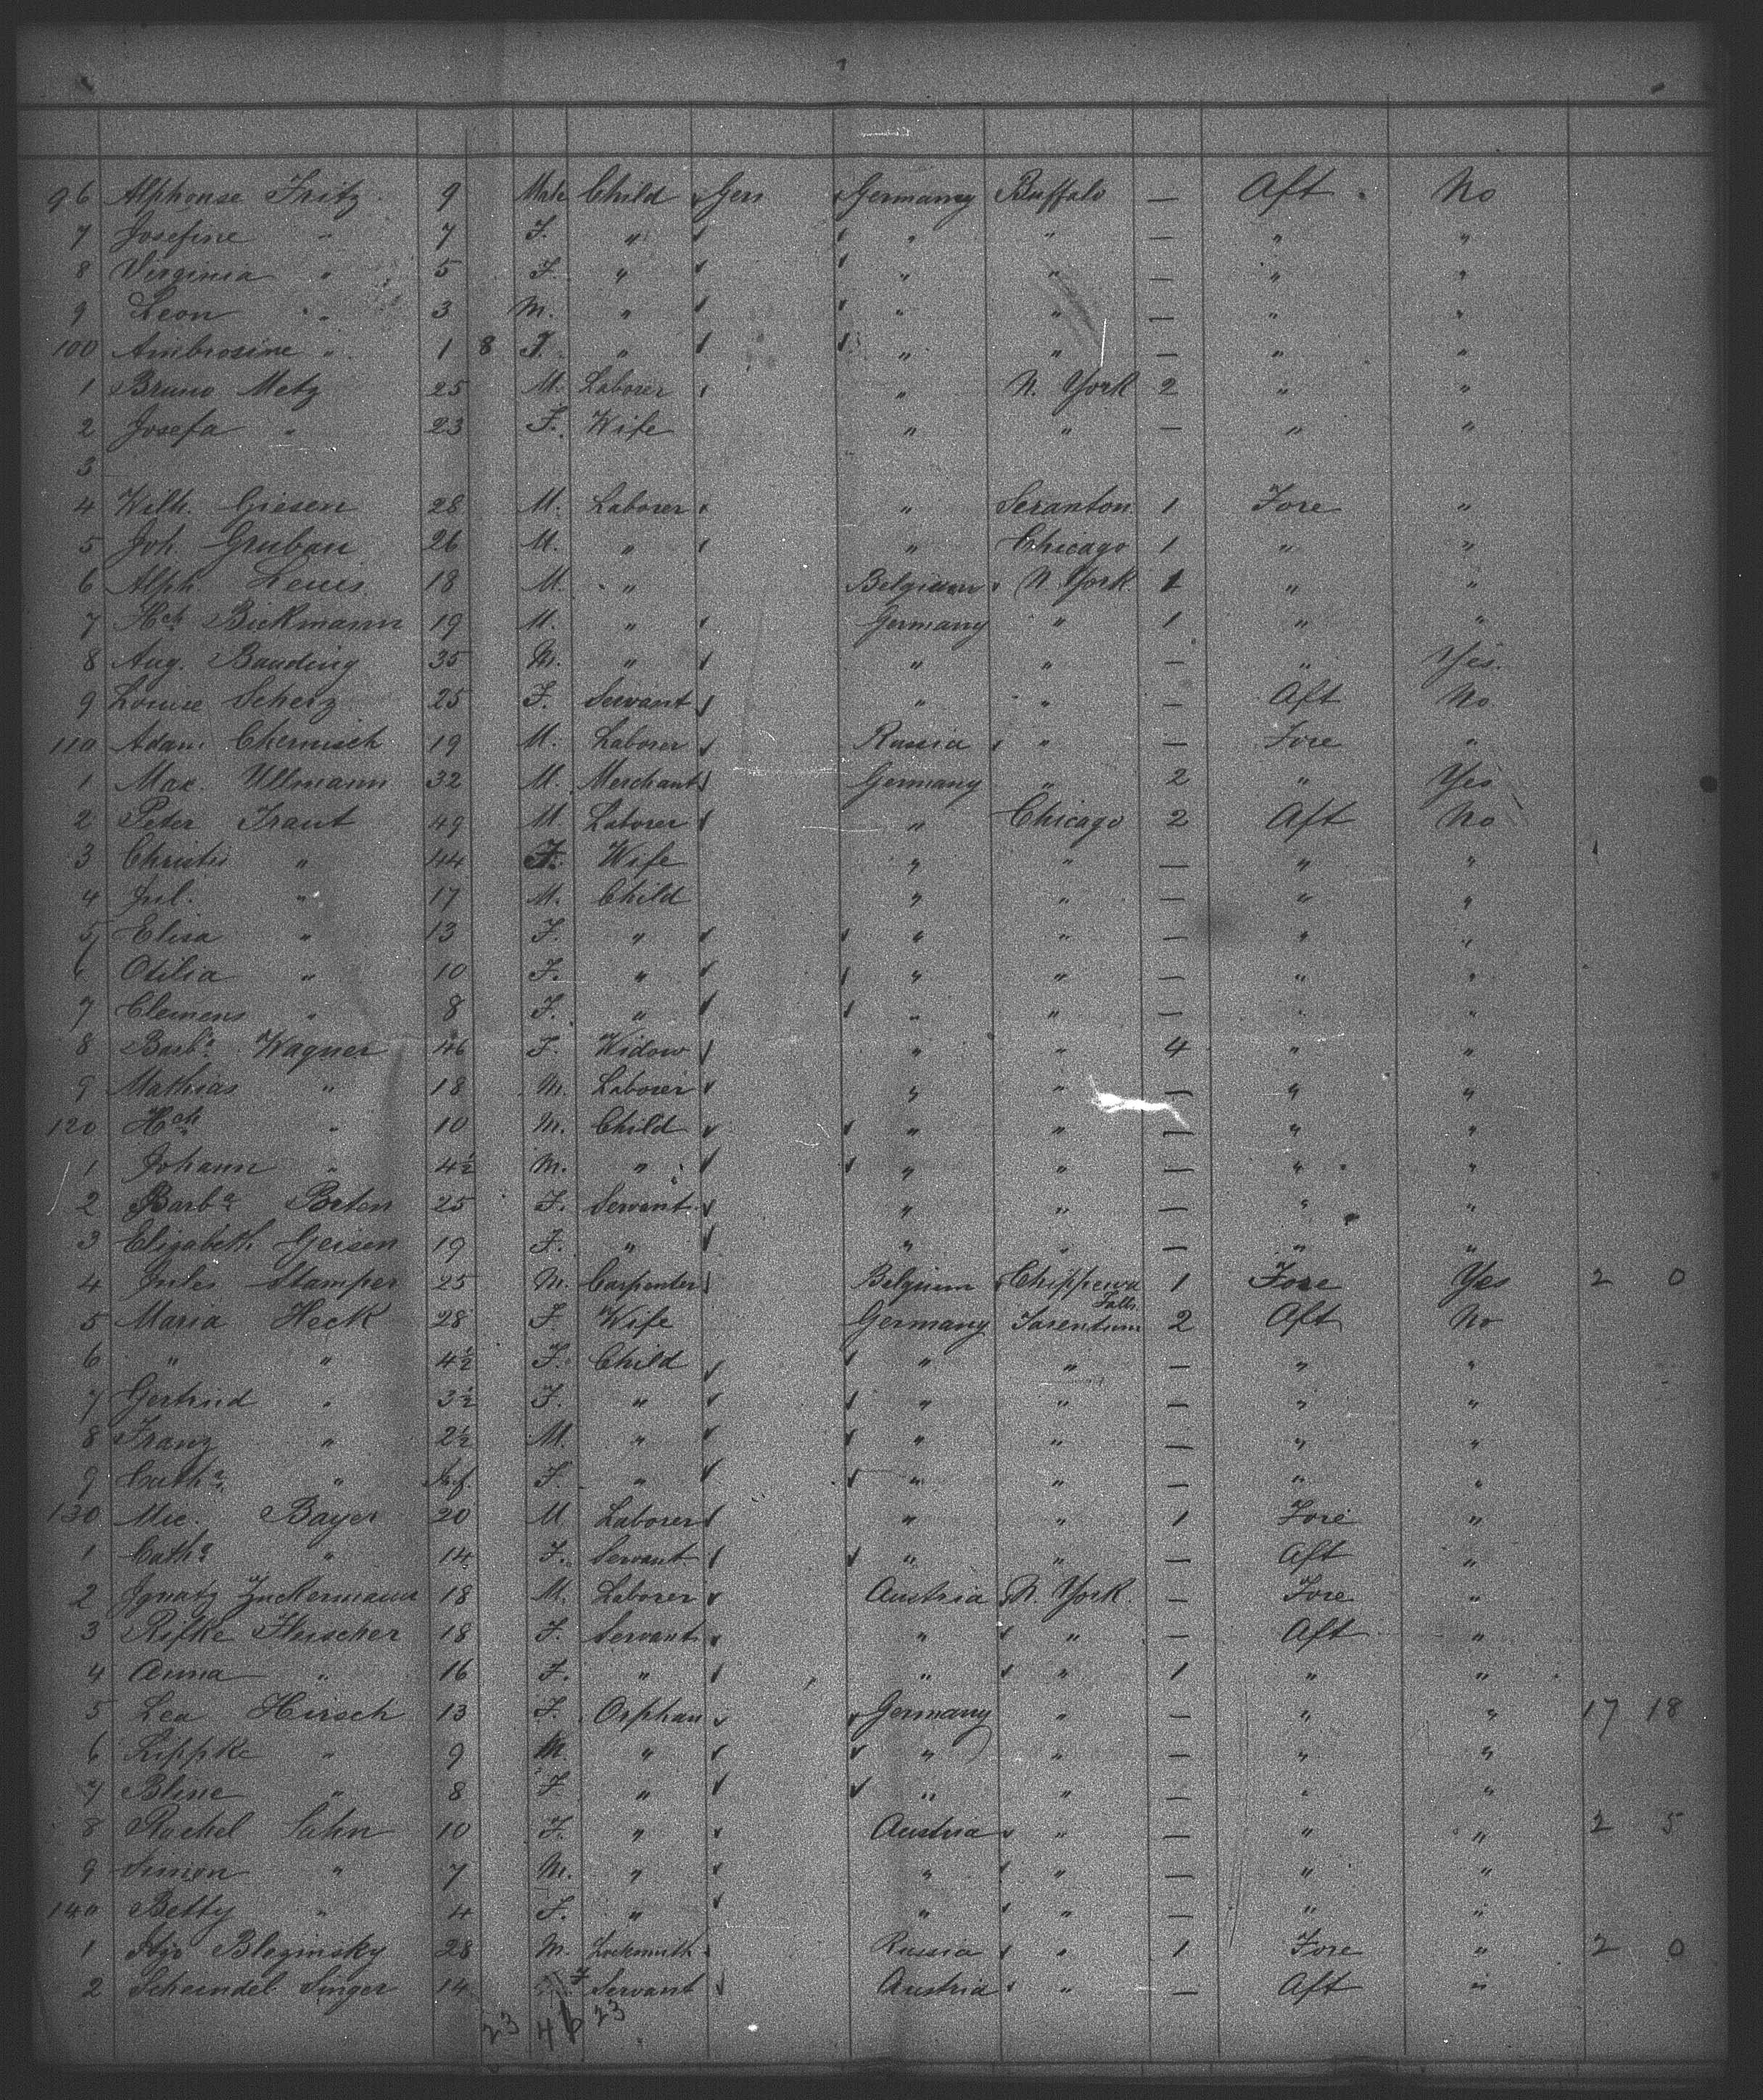 96 Alphonse Fritz 9 Male Child Ger Germany Buffalo — Aft No
7 Josefine " 7 F. " " " — " "
8 Virginia " 5 F. " " " — " "
9 Leon " 3 M. " " " — " "
100 Ambrosine " 1 8 F. " " " — " "
1 Bruno Metz 25 M. Laborer " N. York 2 " "
2 Josefa " 23 F. Wife " " — " "
3
4 Wilh. Giesen 28 M. Laborer " Scranton 1 Fore "
5 Joh. Gruban 26 M. " " Chicago 1 " "
6 Alph. Leuis 18 M. " Belgium N. York 1 " "
7 Hch Bickmann 19 M. " Germany " 1 " "
8 Aug. Bauding 35 M. " " " — " Yes.
9 Louise Scherz 25 F. Servant " " — Aft No
110 Adam Chernisch 19 M. Laborer Russia " — Fore "
1 Max. Ullmann 32 M. Merchant Germany " 2 " Yes
2 Peter Traut 49 M Laborer " Chicago 2 Aft No
3 Christis " 44 F. Wife " " — " "
4 Jul. " 17 M. Child " " — " "
5 Elisa " 13 F. " " " — " "
6 Otilia " 10 F. " " " — " "
7 Clemens " 8 F. " " " — " "
8 Barba Wagner 46 F. Widow " " 4 " "
9 Mathias " 18 M. Laborer " " — " "
120 Hch " 10 M. Child " " — " "
1 Johann " 4½ M. " " " — " "
2 Barba Porten 25 F. Servant " " — " "
3 Elizabeth Geisen 19 F. " " " — " "
4 Jules Stamper 25 M. Carpenter Belgium Chippewa Falls 1 Fore Yes 2 0
5 Maria Heck 28 F Wife Germany Tarentum 2 Aft No
6 " " 4½ F. Child " " — " "
7 Gertrud " 3½ F. " " " — " "
8 Franz " 2½ M. " " " — " "
9 Catha " Inf. F. " " " — " "
130 Mic. Bayer 20 M Laborer " " 1 Fore "
1 Catha " 14 F. Servant " " — Aft "
2 Ignatz Zuckermann 18 M. Laborer Austria N. York — Fore "
3 Rifke Fluscher 18 F. Servant " " — Aft "
4 Anna " 16 F. " " " 1 " "
5 Lea Hirsch 13 F. Orphan Germany " — " " 17 18
6 Lippke " 9 M. " " " — " "
7 Blene " 8 F. " " " — " "
8 Rachel Sahn 10 F. " Austria " — " " 2 5
9 Simon " 7 M. " " " — " "
140 Betty " 4 F. " " " — " "
1 Blozinsky 28 M. Locksmith Russia " 1 Fore " 2 0
2 Scheindel Singer 14 F Servant Austria " — Aft "
23 46 23